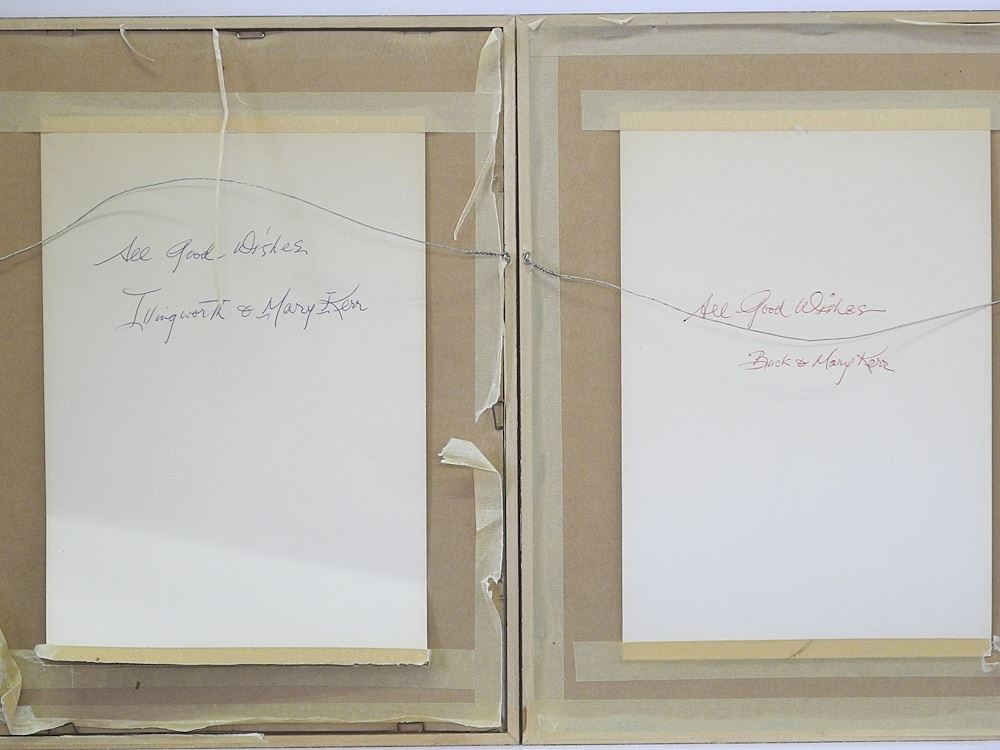 All Good Wishes
Illingworth & Mary Kerr
All Good Wishes
Buck & Mary Kerr